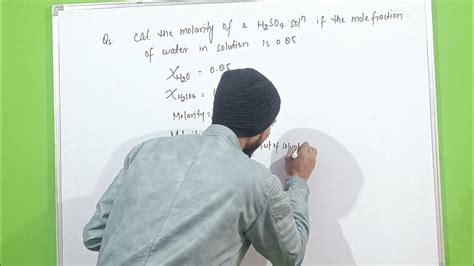 Q. Cal the molarity of a H₂SO₄ solⁿ if the mole fraction
of water in solution is 0.85
X H₂O = 0.85
X H₂SO₄ =
Molarity =
of